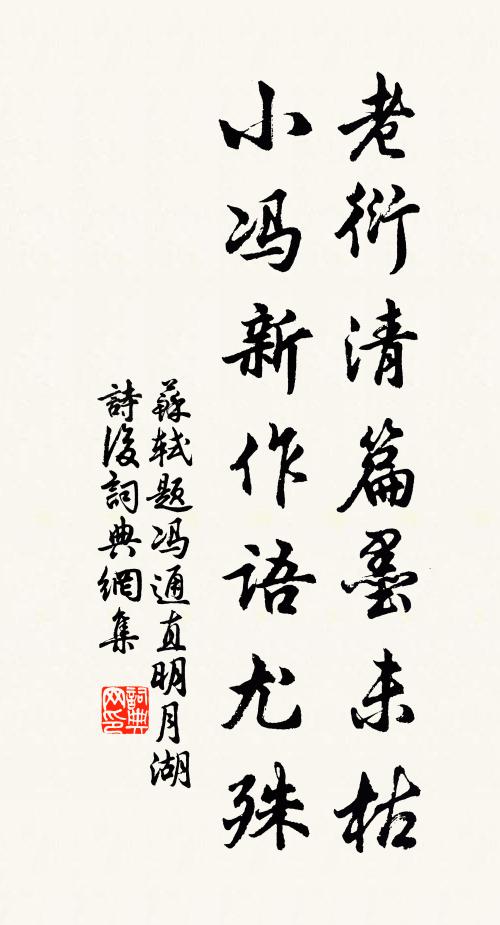 老衍清篇墨未枯
小冯新作语尤殊
蘇軾题冯通直明月湖
詩後詞典網集
詞典网印